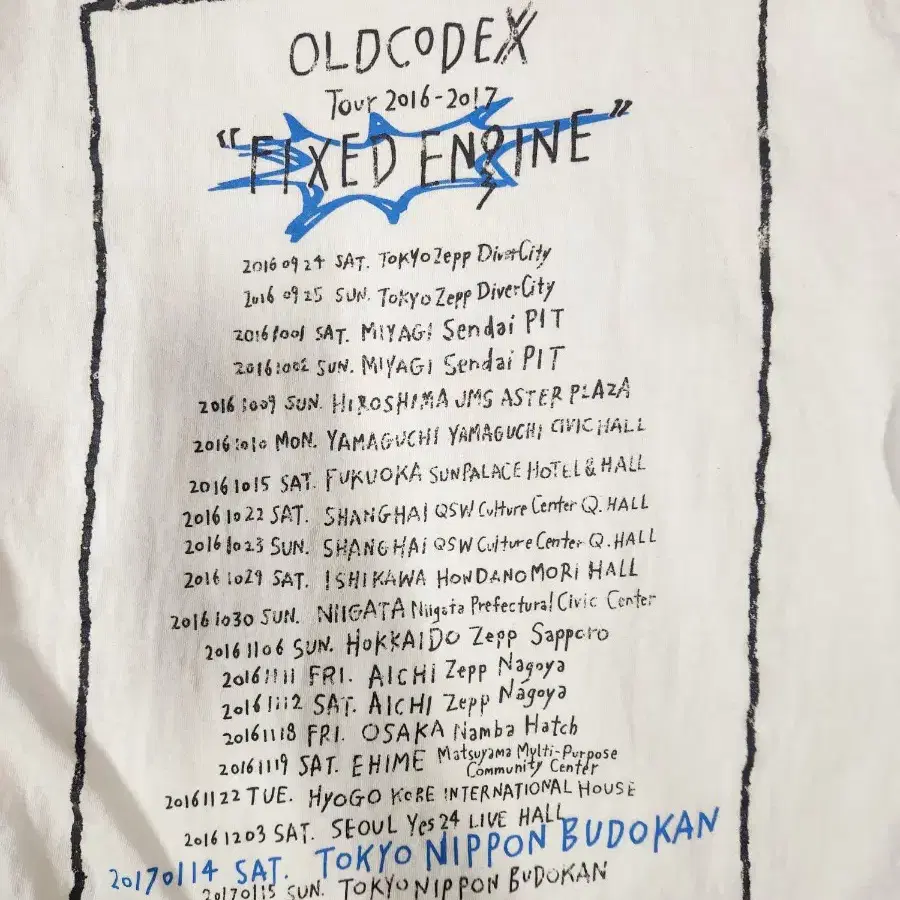 OLDCODEX
Tour 2016-2017
"FIXED ENGINE"
2016 09 24 SAT. TOKYO Zepp DiverCity
2016 09 25 SUN. TOKYO Zepp DiverCity
2016 1001 SAT. MIYAGI Sendai PIT
2016 1002 SUN. MIYAGI Sendai PIT
2016 1009 SUN. HIROSHIMA JMS ASTER PLAZA
2016 1010 MON. YAMAGUCHI YAMAGUCHI CIVIC HALL
2016 1015 SAT. FUKUOKA SUNPALACE HOTEL & HALL
2016 1022 SAT. SHANGHAI QSW Culture Center Q. HALL
2016 1023 SUN. SHANGHAI QSW Culture Center Q. HALL
2016 1029 SAT. ISHIKAWA HONDANOMORI HALL
2016 1030 SUN. NIIGATA Niigata Prefectural Civic Center
2016 1106 SUN. HOKKAIDO Zepp Sapporo
2016 1111 FRI. AICHI Zepp Nagoya
2016 1112 SAT. AICHI Zepp Nagoya
2016 1118 FRI. OSAKA Namba Hatch
2016 1119 SAT. EHIME Matsuyama Multi-Purpose
Community Center
2016 1122 TUE. HYOGO KOBE INTERNATIONAL HOUSE
2016 1203 SAT. SEOUL Yes24 LIVE HALL
2017 0114 SAT. TOKYO NIPPON BUDOKAN
2017 0115 SUN. TOKYO NIPPON BUDOKAN